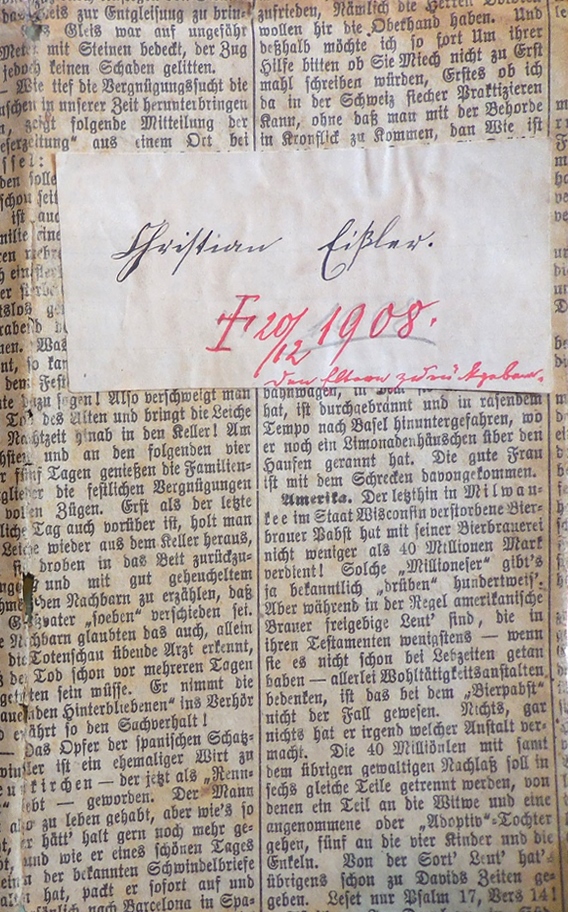 zur Entgleisung zu brin-
Gleis war auf ungefähr
Meter mit Steinen bedeckt, der Zug
jedoch keinen Schaden gelitten.
— Wie tief die Vergnügungssucht die
in unserer Zeit herunterbringen
zeigt folgende Mitteilung der
aus einem Ort bei
zufrieden, Nämlich die Herren
wollen hir die Oberhand haben. Und
deßhalb möchte ich so fort Um ihrer
Hilfe bitten ob Sie Miech nicht zu Erst
mahl schreiben würden, Erstes ob ich
da in der Schweiz siecher Praktizieren
Kann, ohne daß man mit der Behorde
in Kronflick zu Kommen, dan Wie ist
Christian Eißler.
20/12 1908.
den Eltern zurückgeben.
Also verschweigt man
des Alten und bringt die Leiche
Nachtzeit hinab in den Keller! Am
und an den folgenden vier
fünf Tagen genießen die Familien-
die festlichen Vergnügungen
vollen Zügen. Erst als der letzte
Tag auch vorüber ist, holt man
Leiche wieder aus dem Keller heraus,
droben in das Bett zurückzu-
und mit gut geheucheltem
den Nachbarn zu erzählen, daß
Großvater „soeben" verschieden sei.
Nachbarn glaubten das auch, allein
die Totenschau übende Arzt erkennt,
Tod schon vor mehreren Tagen
sein müsse. Er nimmt die
Hinterbliebenen" ins Verhör
erfährt so den Sachverhalt!
— Das Opfer der spanischen Schatz-
ist ein ehemaliger Wirt zu
kirchen — der jetzt als „Renn-
lebt — geworden. Der Mann
zu leben gehabt, aber wie's so
hätt' halt gern noch mehr ge-
und wie er eines schönen Tages
der bekannten Schwindelbriefe
hat, packt er sofort auf und
nach Barcelona in Spa-
hat, ist durchgebrannt und in rasendem
Tempo nach Basel hinuntergefahren, wo
er noch ein Limonadenhäuschen über den
Haufen gerannt hat. Die gute Frau
ist mit dem Schrecken davongekommen.
Amerika. Der letzthin in Milwau-
kee im Staat Wisconsin verstorbene Bier-
brauer Pabst hat mit seiner Bierbrauerei
nicht weniger als 40 Millionen Mark
verdient! Solche „Millioneser" gibt's
ja bekanntlich „drüben" hundertweis'.
Aber während in der Regel amerikanische
Brauer freigebige Leut' sind, die in
ihren Testamenten wenigstens — wenn
sie es nicht schon bei Lebzeiten getan
haben — allerlei Wohltätigkeitsanstalten
bedenken, ist das bei dem „Bierpabst"
nicht der Fall gewesen. Nichts, gar
nichts hat er irgend welcher Anstalt ver-
macht. Die 40 Millionen mit samt
dem übrigen gewaltigen Nachlaß soll in
sechs gleiche Teile getrennt werden, von
denen ein Teil an die Witwe und eine
angenommene oder „Adoptiv"-Tochter
gehen, fünf an die vier Kinder und die
Enkeln. Von der Sort' Leut' hat's
übrigens schon zu Davids Zeiten ge-
geben. Leset nur Psalm 17, Vers 14!